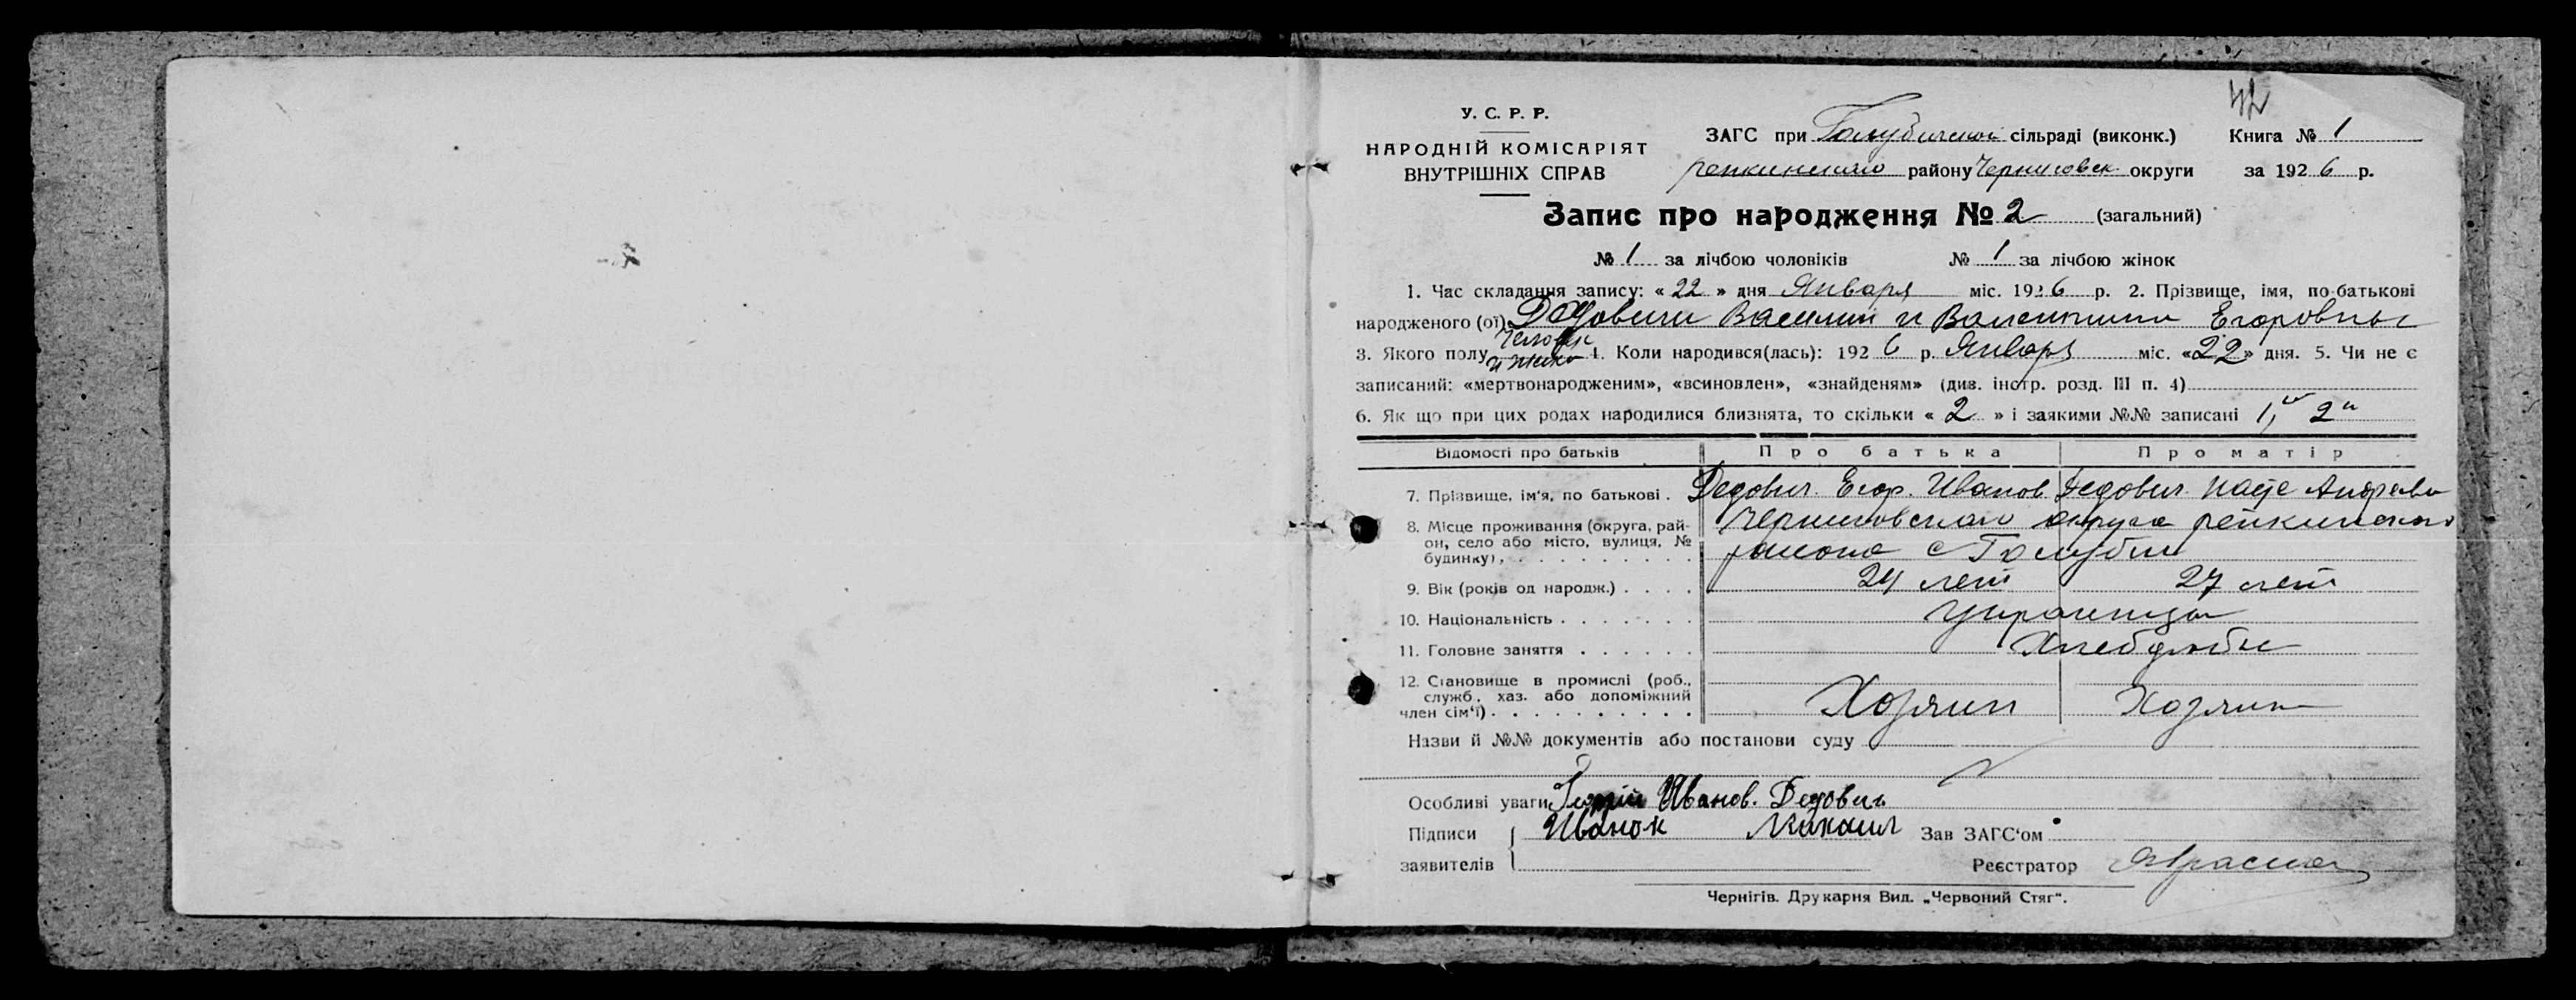 42
У. С. Р. Р.
НАРОДНІЙ КОМІСАРІЯТ
ВНУТРІШНІХ СПРАВ
ЗАГС при Голубичской сільраді (виконк.)
репкинского району Черниговск. округи
Книга № 1
за 1926 р.
Запис про народження № 2 (загальний)
№ 1 за лічбою чоловіків № 1 за лічбою жінок
1. Час складання запису: « 22 » дня Января міс. 1926 р. 2. Прізвище, імя, по-батькові
народженого (ої) Василий и Валентина Егоровны
3. Якого полу и женс 4. Коли народився(лась): 1926 р. Января міс. «22» дня. 5. Чи не є
записаний: «мертвонародженим», «всиновлен», «знайденям» (див. інстр. розд. III п. 4)
6. Як що при цих родах народилися близнята, то скільки « 2 » і заякими №№ записані 1, 2
Відомості про батьків Про батька Про матір
7. Прізвище, ім'я, по батькові . Дедович Егор. Иванов. Дедович Андреев
8. Місце проживання (округа, рай- Черниговского округа репкинского
он, село або місто, вулиця, № района с Голубичи
будинку), . . . . . . . . . .
9. Вік (років од народж.) . . . . 24 лет 27 лет
10. Національність . . . . . . . Украинцы
11. Головне заняття . . . . . . Хлеборобы
12. Становище в промислі (роб.,
служб., хаз. або допоміжний
член сім'ї) . . . . . . . . . . Хозяин Хозяин
Назви й №№ документів або постанови суду
Особливі уваги Иванов. Дедович
Підписи Иванок Михаил Зав ЗАГС'ом
заявителів Реєстратор
Чернігів. Друкарня Вид. „Червоний Стяг“.